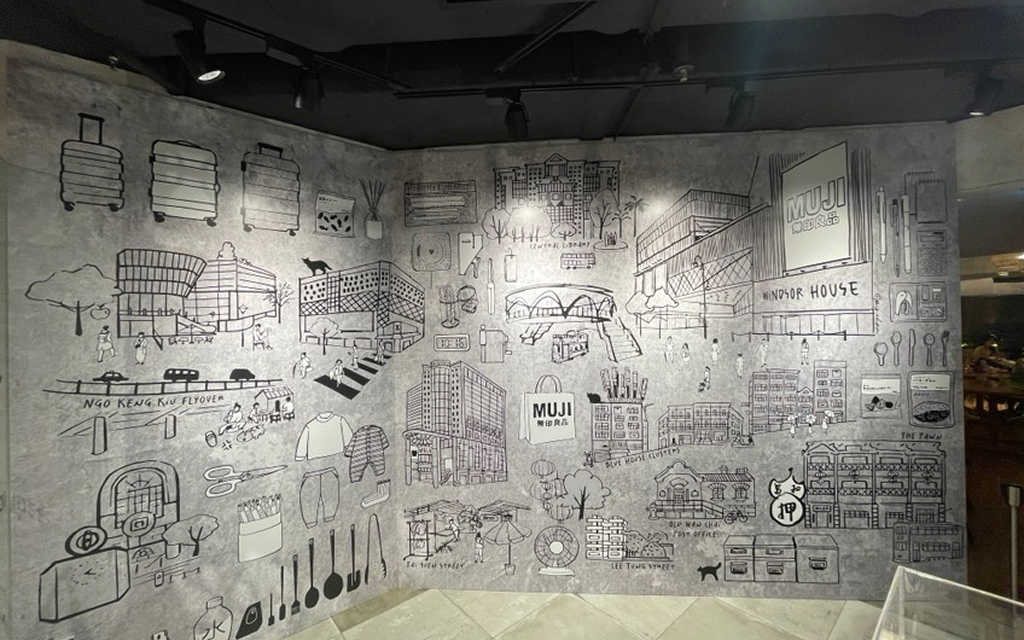 CENTRAL LIBRARY
MUJI
無印良品
WINDSOR HOUSE
NGO KENG KIU FLYOVER
MUJI
無印良品
BLUE HOUSE CLUSTERS
THE PAWN
押
OLD WAN CHAI
POST OFFICE
TAI YUEN STREET
LEE TUNG STREET
水